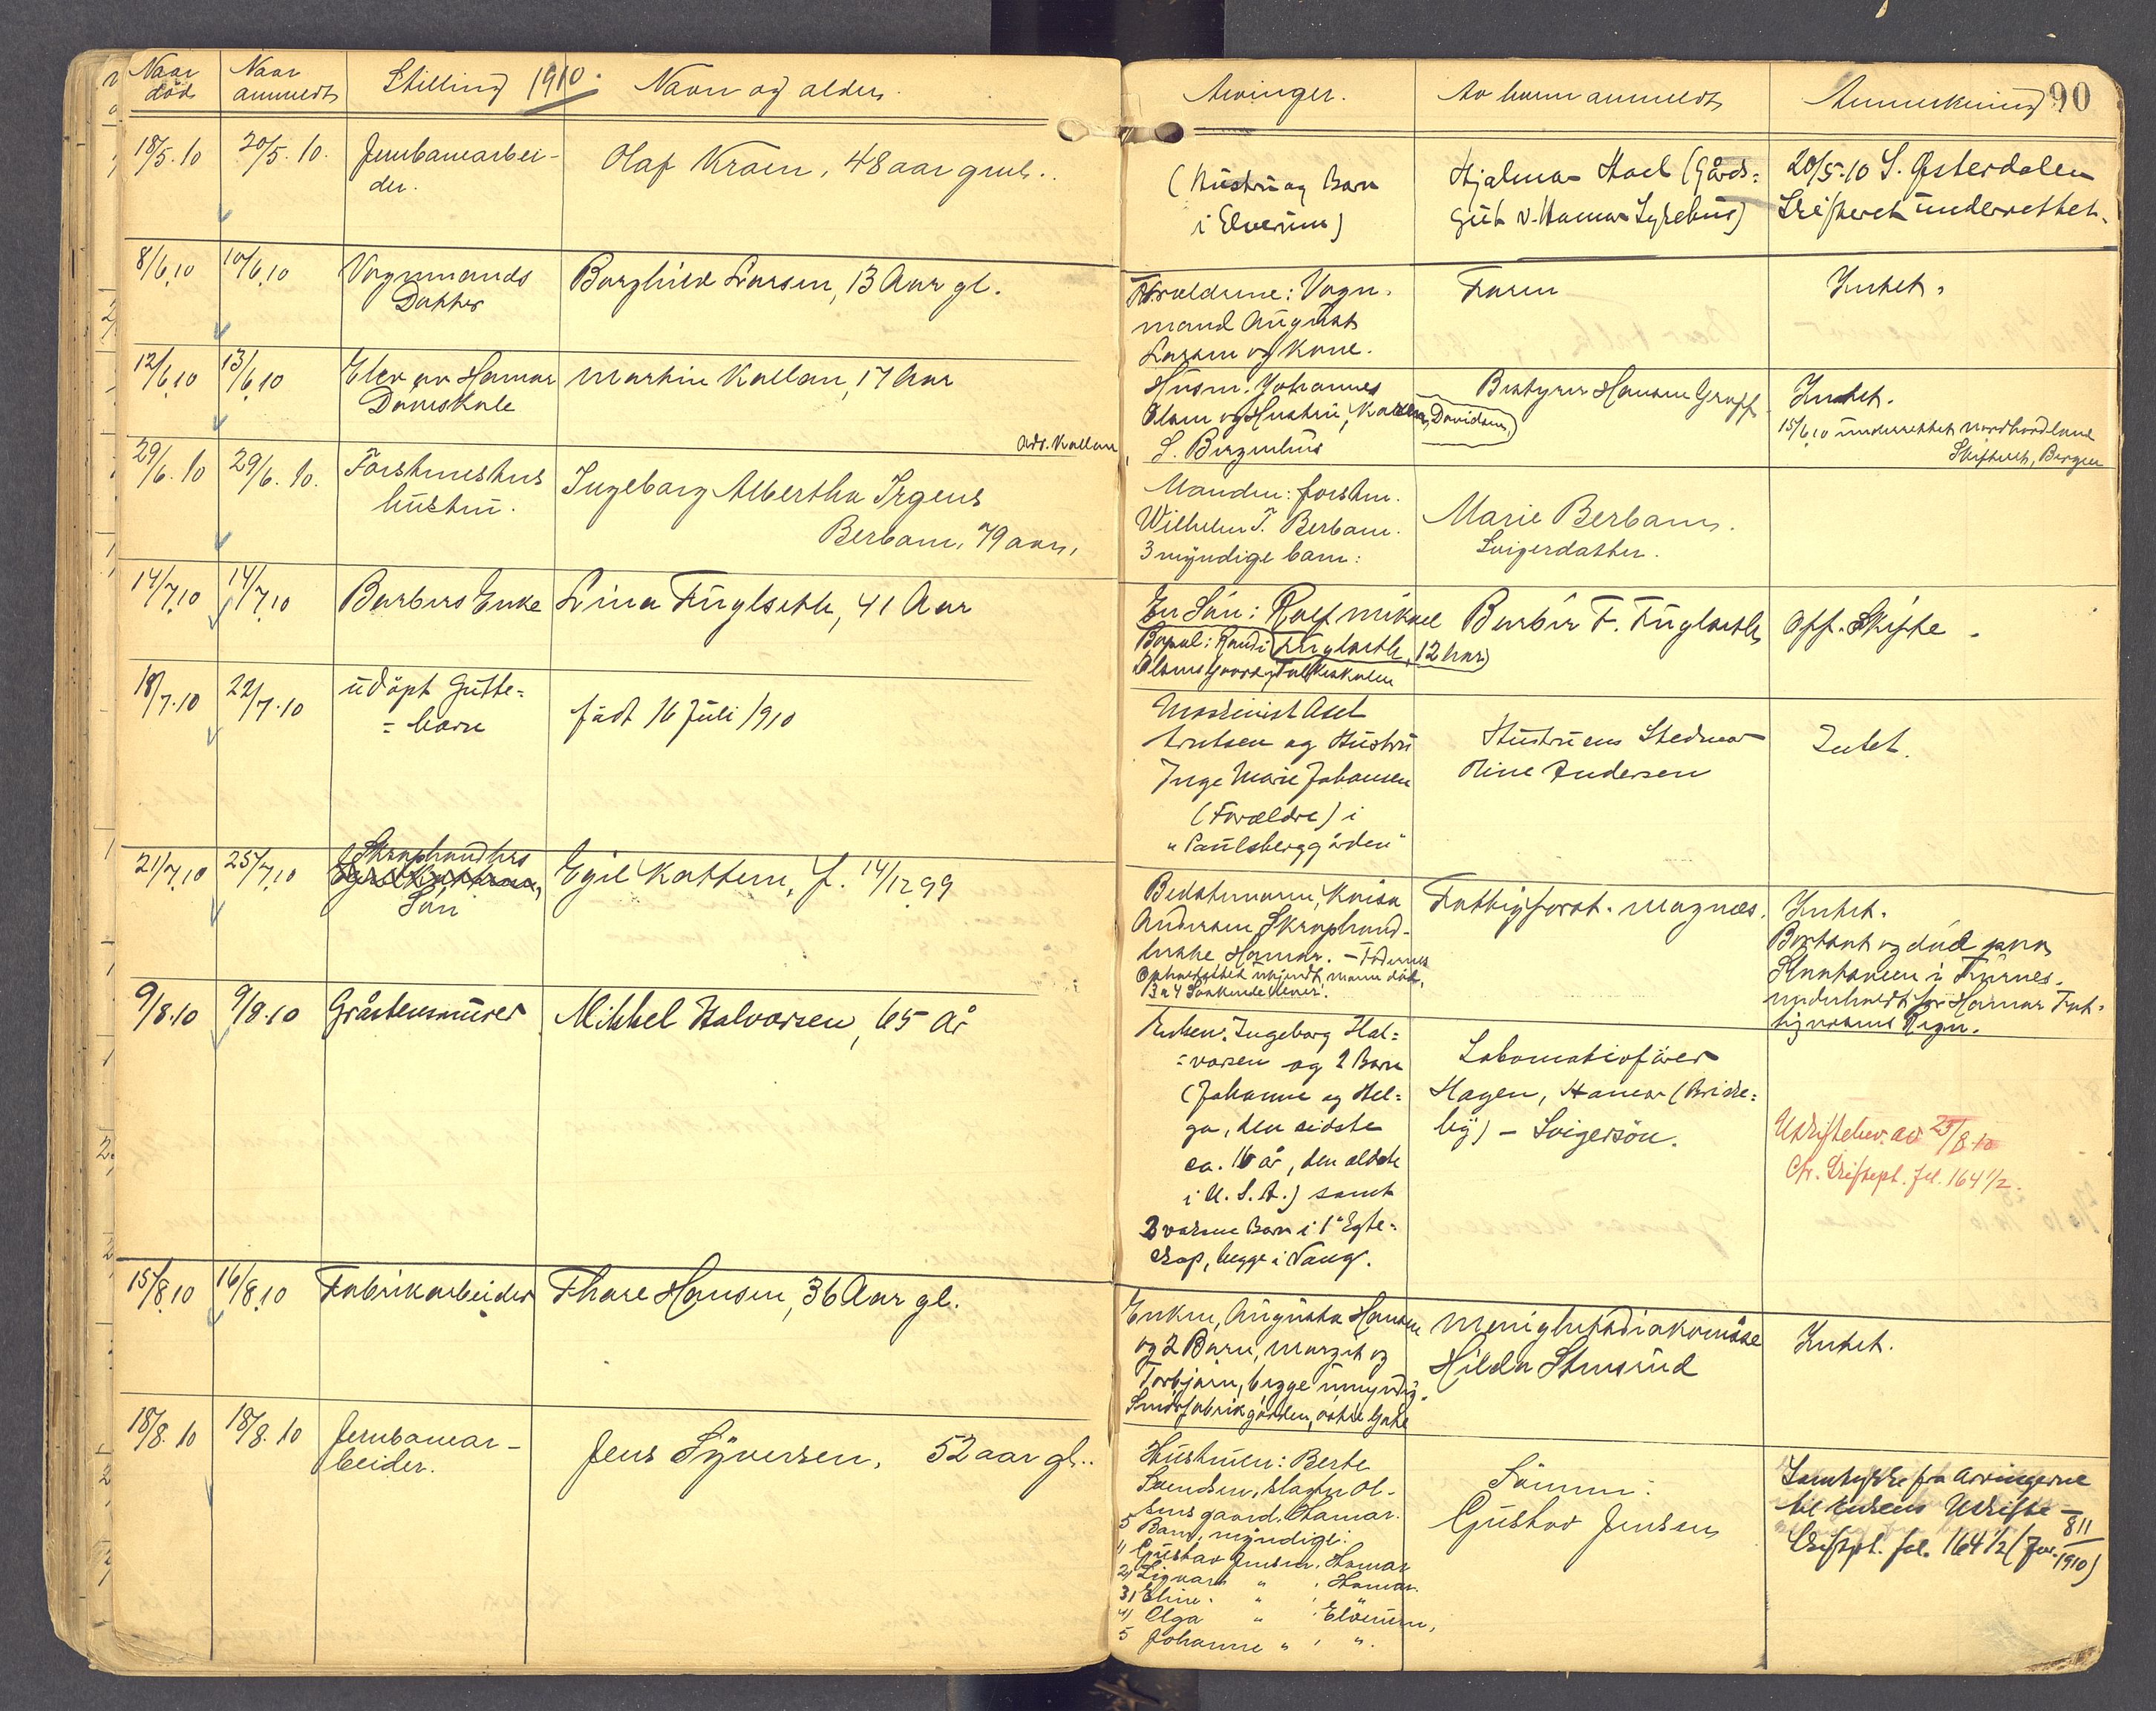 Naar død
Naar anmeldt
Stilling
1910.
Navn og alder.
Arvinger.
Av hvem anmeldt
Anmerkning
90
18/5.10
20/5.10.
Jernbanearbei-
der.
Olaf Kroen, 48 aar gml..
(Hustru og Barn
i Elverum)
Hjalmar Hoel (Gårds=
gut v. Hamar Sykehus)
20/5-10 S. Østerdalen
Skifteret underrettet.
8/6.10
10/6.10
Vognmands
Datter
Borghild Larsen, 13 Aar gl.
Forældrene: Vogn-
mand August
Larsen og Kone.
Faren
Intet.
12/6.10
13/6.10
Elev av Hamar
Døveskole
Martin Kallan, 17 Aar
adr. Kallan
Husm. Johannes
Olsen og Hustru, Karen Davidsen,
S. Bergenhus
Bestyrer Hansen Graff
Intet.
15/6 10 underrettet Nordhordland
Skifteret, Bergen
29/6.10
29/6.10.
hustru.
Ingeborg Albertha Irgens
Berbom, 79 aar,
Manden: forstm.
Wilhelm T. Berbom.
3 myndige barn:
Marie Berbom.
Svigerdatter.
14/7.10
14/7.10
Barbers Enke
Lina Fuglseth, 41 Aar
En Søn: Rolf Mikael
Fuglseth, 12 Aar)
Bopæl:
Olsens Gaard, Folkeskolen
Barber F. Fuglseth
Off. Skifte.
18/7.10
22/7.10
udøpt Gutte=
=barn
født 16 Juli 1910
Maskinist Axel
Knutsen og Hustru
Inge Marie Johansen
(Forældre) i
"Paulsberggården"
Hustruens Stedmor
Oline Andersen
Intet.
21/7.10
25/7.10
Skraphandlers
Søn
Egil Kattem, f. 14/12 99
Bedstemoren, Kaisa
Andersen Skraphand-
lerske Hamar. - Faderens
Opholdssted ukjendt, moren død,
3 a 4 Søskende lever.
Fattigforst. Magnæs.
Intet.
Bortsat og død paa
i Furnes.
underholdt for Hamar Fat-
tigvæsens Regn.
9/8.10
9/8.10
Gråstensmurer
Mikkel Halvorsen, 65 År
Enken: Ingeborg Hal=
=vorsen og 2 Barn
(Johanne og Hel=
ga, den sidste
ca. 16 år, den ældste
i U.S.A.) samt
2 voksne Barn i 1ste Egte=
skap, begge i Vang.
Lokomotivfører
Hagen, Hamar (Briske=
by) - Svigersøn.
Uskiftebev. av 25/8-10
Cfr. Skiftepr. fol. 164 1/2.
15/8.10
16/8.10
Fabrikarbeider
Thore Hansen, 36 Aar gl.
Enken, Augusta Hansen
og 2 Barn, Margit og
Torbjørn, begge umyndig.
Smørfabrikgården, østre Gate
Menighetsdiakonisse
Hilda Stensrud
Intet.
18/8.10
18/8.10
Jernbanear-
beider.
Jens Syversen, 52 aar gl..
Hustruen: Berte
Svendsen, slagter Ol-
sens gaard, Hamar.
5 Barn, myndige:
1) Gustav Jensen, Hamar
2) Sigvart " , Hamar.
3) Eline " , "
4) Olga " , Elverum,
5 Johanne " , ".
Sønnen:
Gustav Jensen
Samtykke fra Arvingerne
til enkens Uskifte -
Skiftepr. fol. 164 1/2 (Jnr. 811/1910)